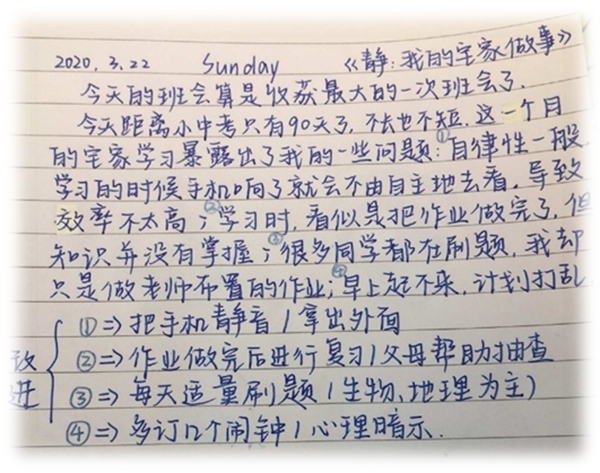 2020.3.22 Sunday 《静:我的宅家做事》
今天的班会算是收获最大的一次班会了.
今天距离小中考只有90天了,不长也不短.这一个月
的宅家学习暴露出了我的一些问题:①自律性一般,
学习的时候手机响了就会不由自主地去看,导致
效率不太高;②学习时,看似是把作业做完了,但
知识并没有掌握;③很多同学都在刷题,我却
只是做老师布置的作业;④早上起不来,计划打乱
改进
①=>把手机静音/拿出外面
②=>作业做完后进行复习/父母帮助抽查
③=>每天适量刷题(生物、地理为主)
④=>多订几个闹钟/心理暗示.